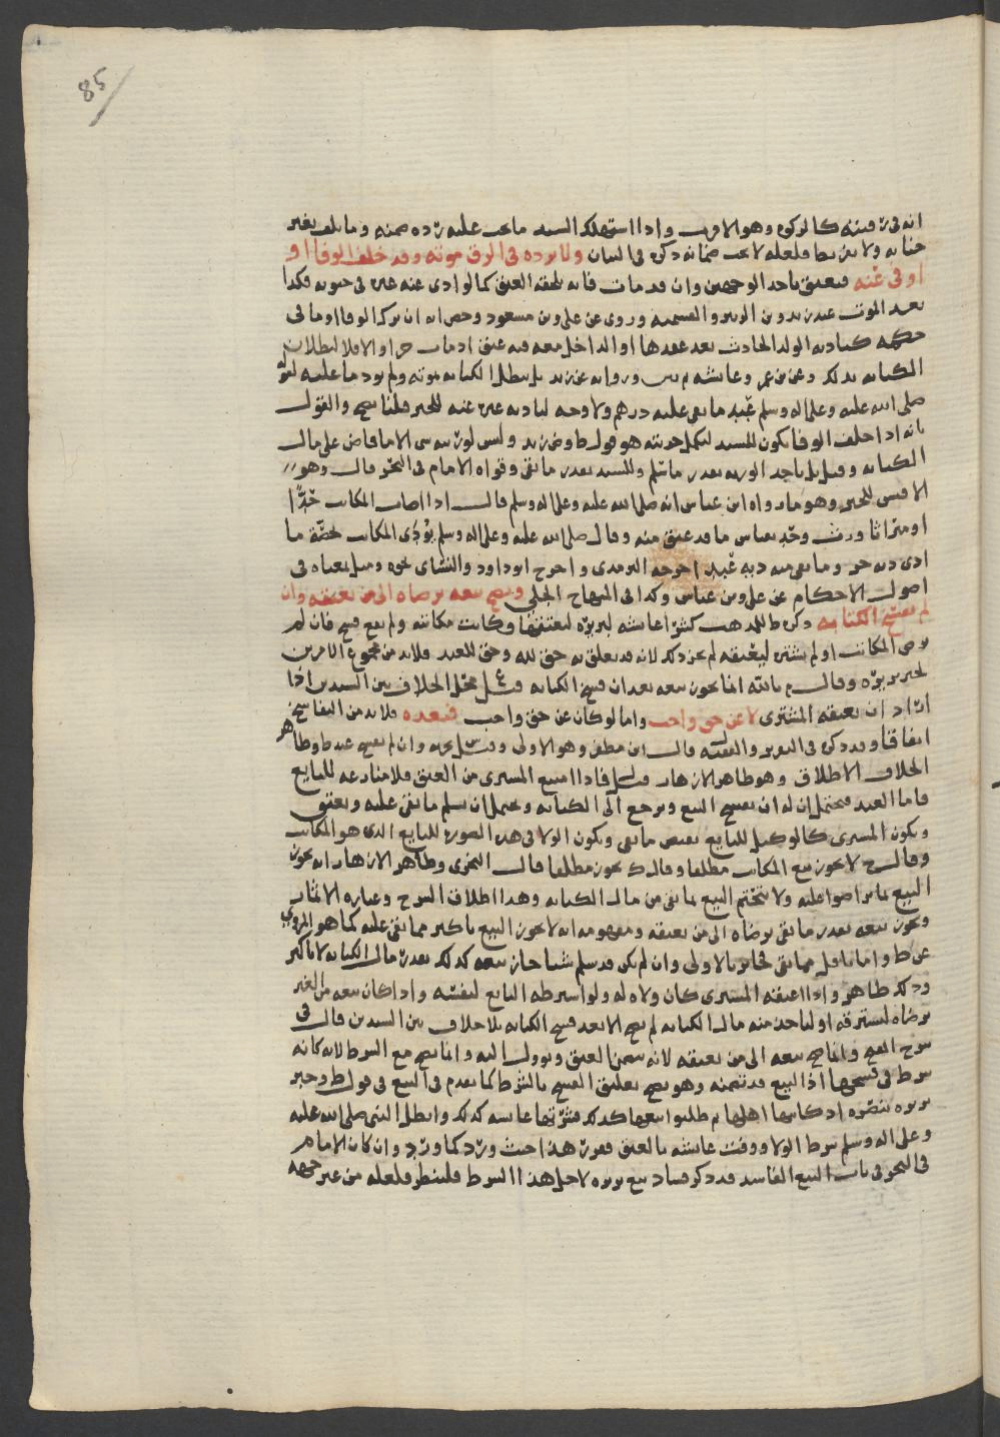 85
انه في قيمته كالزكوه وهو الاقرب واذا استهلك السيد ما يجب عليه رده ضمنه وما تلف بغير
جنايه ولا تفريط فلعله لا يجب ضمانه ذكره في البيان ولا يرده في الرق موته وقد خلف الوفا او
اوفى عنه فيعتق باحد الوجهين وان قد مات فانه يلحقه العتق كما لو ادى عنه غيره في حيوته فكذا
بعد الموت عند زيد بن والقسميه وروي عن علي وبن مسعود وحصل انه ان ترك الوفا اوفا في
حكمه كتاديه الولد الحادث بعد عقدها او الداخل معه فيه عتق اذ مات حرا والا فلا لبطلان
الكتابه بذلك وعن بن عمر وعائشه وروايه عن زيد بل يبطل الكتابه موته ولم يود ما عليه لقوله
صلى الله عليه وعلى اله وسلم عبد ما بقي عليه درهم ولا وجه لتاديه غيره عنه للخبر قلنا والقول
بانه اذا خلف الوفا يكون للسيد ليكمل حريته هو قول ط وض زيد وليس لورثته سى الا ما فاض على مال
الكتابه وقيل بل ياخذ الورثه بقدر ما سلم وللسيد بقدر ما بقي وقواه الامام في البحر قال وهو
الاقيس للخبر وهو ما رواه ابن عباس انه صلى الله عليه وعلى اله وسلم قال اذا اصاب المكاتب حدًّا
او ميراثا ورث وحد بقياس ما قد عتق منه وقال صلى الله عليه وعلى اله وسلم يؤدى المكاتب بحصّة ما
ادى ديه حر وما بقي منه ديه عبد اخرجه الترمذي واخرج ابو داود والنسائي نحوه ومثل معناه في
اصول الاحكام عن علي وبن عباس وكذا في المنهاج الجلي ويصح بيعه برضاه الى من يعتقه وان
لم تفسخ الكتابه ذكره ط للمذهب كشرا عائشه لبريره لتعتقها وكانت مكاتبه ولم يقع فسخ فان لم
يرض المكاتب او لم يشتره ليعتقه لم يجز ذلك لانه قد تعلق به حق لله وحق للعبد فلا بد من مجموع الامرين
لخبر بريره وقال م بالله انما يجوز بيعه بعد ان فسخ الكتابه قيل محل الخلاف بين السيدين اذا
اراد ان يعتقه المشتري لا عن حق واجب واما لو كان عن حق واجب فبعده فلا بد من التفاسخ
اتفاقا وقد ذكره في قال ابن مظفر وهو الاولى وان لم يفسخ عند ط وظاهر
الخلاف الاطلاق وهو ظاهر الازهار فاذا امتنع المشترى من العتق فلا منازعه للبايع
فاما العبد فيحتمل ان له ان يفسخ البيع ويرجع الى الكتابه ويحتمل ان يسلم ما بقي عليه ويعتق
ويكون المشترى كالوكيل للبايع بقبض ما بقي ويكون الولا في هذه الصوره للبايع الذي هو المكاتب
وقال ح لا يجوز بيع المكاتب مطلقا وقال ك يجوز مطلقا قال النجري وظاهر الازهار انه يجوز
البيع بما تراضوا عليه ولا يتحتم البيع بما بقي من مال الكتابه وهذا اطلاق الشرح وعباره الاثمار
ويجوز بيعه بقدر ما بقي برضاه الى من يعتقه ومفهومه انه لا يجوز البيع باكثر مما بقي عليه كما هو المروي
عن ط واما باقل مما بقي فجائز بالاولى وان لم يكن قد سلم شيا جاز بيعه كذلك بقدر مال الكتابه لا باكثر
وذلك ظاهر واذا اعتقه المشترى كان ولاه له ولو اشترطه البايع لنفسه واذا كان بيعه من الغير
برضاه ليسترقه او لياخذ منه مال الكتابه لم يصح الا بعد فسخ الكتابه بلا خلاف بين السيدين قال في
شرح الفتح وانما صح بيعه الى من يعتقه لانه يتضمن العتق ويوول اليه وانما يصح مع الشرط لانه كانه
شرط في فسخها اذ البيع قد تضمنه وهو يصح تعليق الفسخ بالشرط كما تقدم في البيع في قول ط وخبر
بريره ينصره اذ كاتبها اهلها ثم طلبوا بيعها كذلك فشرتها عائشه كذلك وابطل النبي صلى الله عليه
وعلى اله وسلم شرط الولا ووفت عائشه بالعتق فقرر هذا حيث ورد كما ورد وان كان الامام
في البحر في باب البيع الفاسد قد ذكر فساد بيع بريره لاجل هذا الشرط فلينظر فلعله من غير جهه